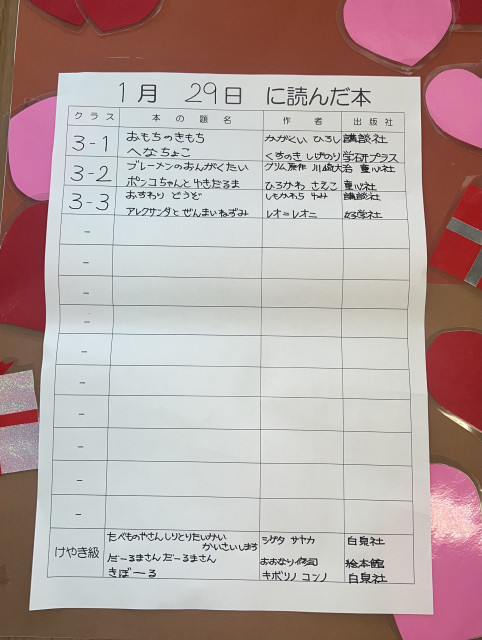 1月 29日 に読んだ本
クラス 本の題名 作者 出版社
3-1 おもちのきもち かがくい ひろし 講談社
へなちょこ くすのき しげのり 学研プラス
3-2 ブレーメンのおんがくたい グリム原作 川崎大治 童心社
ポンコちゃんとゆきだるま ひろかわ さえこ 童心社
3-3 おすわり どうぞ しもかわら ゆみ 講談社
アレクサンダと ぜんまいねずみ レオ=レオニ 好学社
-
-
-
-
-
-
-
-
-
-
けやき級 たべものやさん しりとりたいかい シゲタ サヤカ 白泉社
かいさいします
だーるまさん だーるまさん おおなり修司 絵本館
きぼーる キボリノ コンノ 白泉社